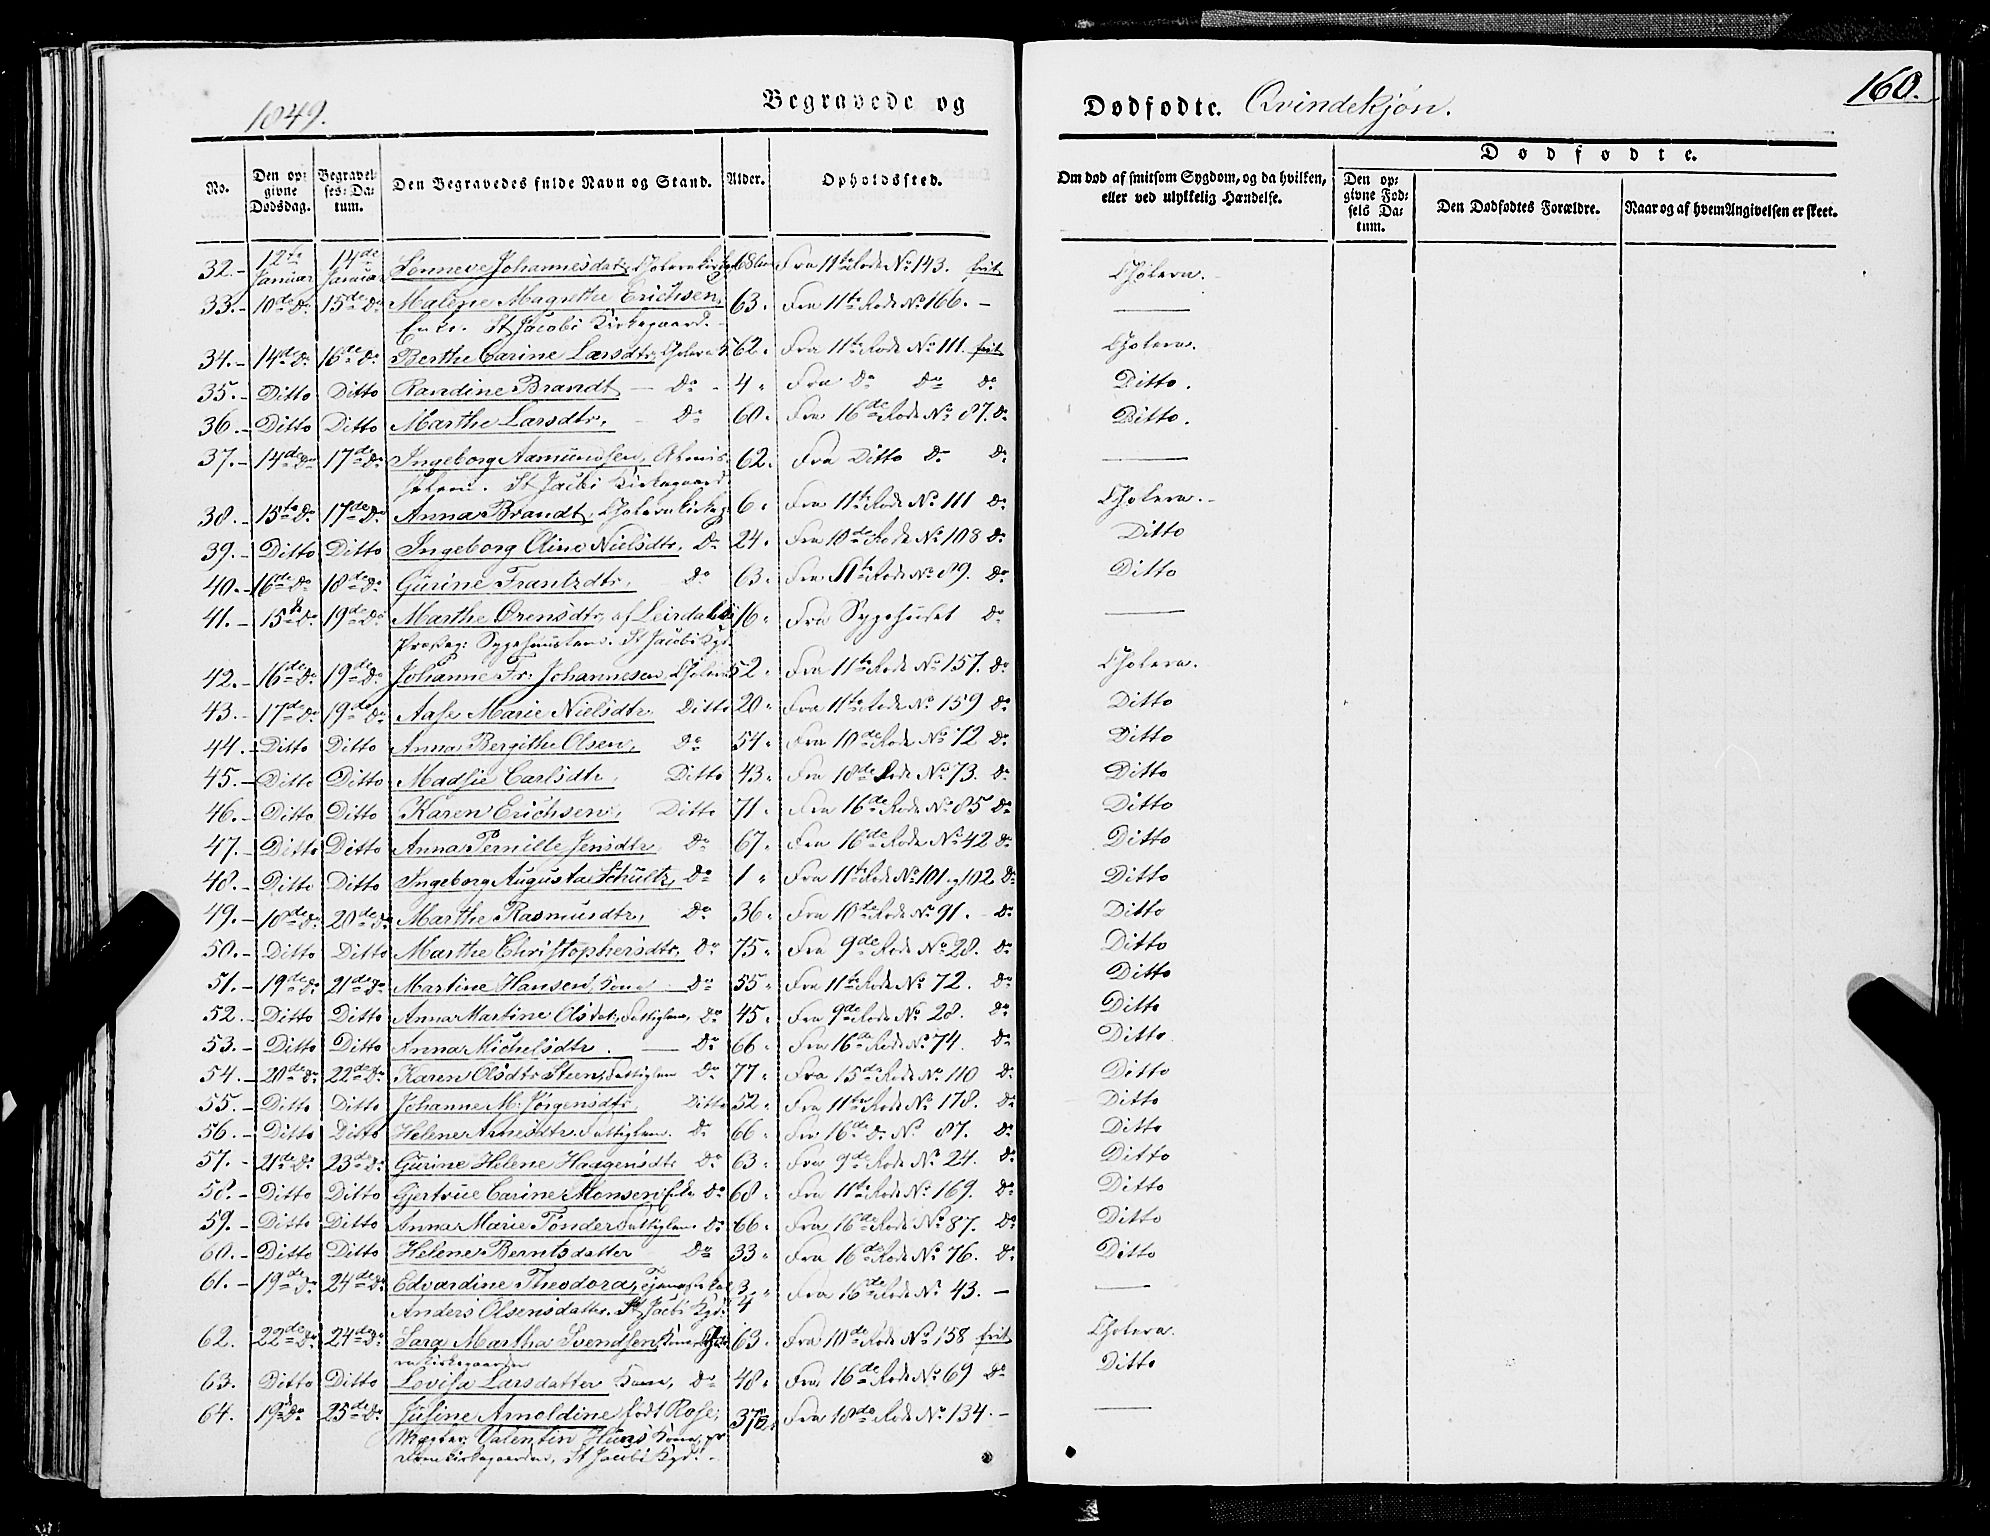 160.
1849.
Begravede og
Dødfødte. Qvindekjøn.
No.
Den opgivne Dødsdag.
Begravelses-Datum.
Den Begravedes fulde Navn og Stand.
Alder.
Opholdssted.
Om død af smitsom Sygdom, og da hvilken, eller ved ulykkelig Hændelse.
Dødfødte.
Den opgivne Fødsels Datum.
Den Dødfødtes Forældre.
Naar og af hvem Angivelsen er skeet.
32. 12te Januar 14de Januar Sønneve Johannesdatr, 68 Fra 11te Rode No 143. frit Cholera.
33. 10de Do 15de Do Malene Magrethe Erichsen, 63. Fra 11te Rode No 166. —
Enke. St Jacobi Kirkegaard.
34. 14de Do 16de Do Berthe Carine Larsdtr, Cholera K 62. Fra 11te Rode No 111. frit Cholera.
35. Ditto Ditto Randine Brandt — Do 4. Fra Do Do Do Ditto.
36. Ditto Ditto Marthe Larsdtr, Do 60. Fra 16de Rode No 87. Do Ditto.
37. 14de Do 17de Do Ingeborg Aamundsen, Almis- 62. Fra Ditto Do Do —
St Jacobi Kirkegaard.
38. 15te Do 17de Do Anna Brandt, Cholera Kirkeg 6. Fra 11te Rode No 111 Do Cholera.
39. Ditto Ditto Ingeborg Oline Nielsdtr, Do 24. Fra 10de Rode No 108 Do Ditto
40. 16de Do 18de Do Gurine Frantzdtr, Do 63. Fra 11te Rode No 89. Do Ditto
41. 15de Do 19de Do Marthe Orensdtr, af Leirdals 16. Fra Sygehuset Do —
Præsteg: Sygehuuslem. St Jacobi Kgd
42. 16de Do 19de Do Johanne Fr: Johannesen Cholera 52. Fra 11te Rode No 157. Do Cholera.
43. 17de Do 19de Do Aase Marie Nielsdtr, Ditto 20. Fra 11te Rode No 159 Do Ditto
44. Ditto Ditto Anna Bergithe Olsen, Do 54. Fra 10de Rode No 12 Do Ditto
45. Ditto Ditto Madsie Carlsdtr, Ditto 43. Fra 18de Rode No 73. Do Ditto
46. Ditto Ditto Karen Erichsen, Ditto 71. Fra 16de Rode No 85 Do Ditto
47. Ditto Ditto Anna Pernille Jensdtr, Do 67. Fra 16de Rode No 42 Do Ditto
48. Ditto Ditto Ingeborg Augusta Schultz, Do 1. Fra 11te Rode No 101 og 102 Do Ditto
49. 18de Do 20de Do Marthe Rasmusdtr, Do 36. Fra 10de Rode No 91. Do Ditto
50. Ditto Ditto Marthe Christophersdtr, Do 75. Fra 9de Rode No 28. Do Ditto
51. 19de Do 21de Do Martine Hansen, Kone Do 55. Fra 11te Rode No 72. Do Ditto
52. Ditto Ditto Anna Martine Olsdatr, Fattiglem, Do 45. Fra 9de Rode No 28. Do Ditto
53. Ditto Ditto Anna Michelsdtr. — Do 66. Fra 16de Rode No 74. Do Ditto
54. 20de Do 22de Do Karen Olsdtr Steen, Fattiglem Do 77. Fra 15de Rode No 110 Do Ditto
55. Ditto Ditto Johanne M: Jørgensdtr, Ditto 52. Fra 11te Rode No 178. Do Ditto
56. Ditto Ditto Helene Arnesdtr. Fattiglem. Do 66. Fra 16de Do No 87. Do Ditto
57. 21de Do 23de Do Gurine Helene Haagensdtr Do 63. Fra 9de Rode No 24. Do Ditto
58. Ditto Ditto Gjertrue Carine Monsen, Enke Do 68. Fra 11te Rode No 169. Do Ditto
59. Ditto Ditto Anna Marie Tønder Fattiglem. Do 66. Fra 16de Rode No 87. Do Ditto
60. Ditto Ditto Helene Berntsdatter Do 33. Fra 16de Rode No 76. Do Ditto
61. 19de Do 24de Do Edvardine Theodora, 3/4 Fra 16de Rode No 43. — —
Anders Olsens datter. St Jacobi Kgd.
62. 22de Do 24de Do Sara Martha Svendsen, Kone 63. Fra 10de Rode No 158 frit Cholera.
rakirkegaarden
63. Ditto Ditto Lovisa Larsdatter Kone, Do 48. Fra 16de Rode No 69 Do Ditto
64. 19de Do 25de Do Jusine Arnoldine født Rose, Fra 18de Rode No 134. — —
Valentin Kone,
Domkirkegaarden, St Jacobi Kgd.